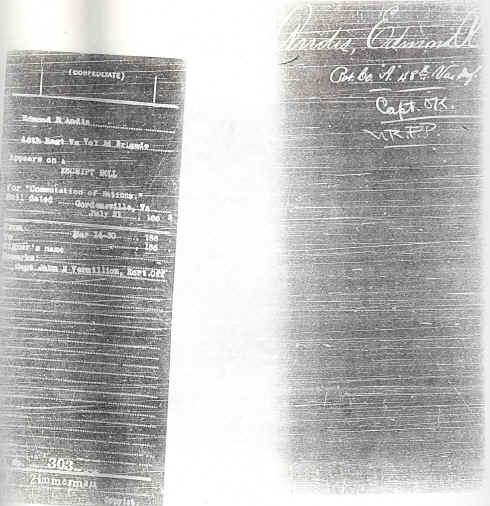 (CONFEDERATE)
Edmond R Andis
48th Regt Va Vol 2d Brigade
Appears on a
RECEIPT ROLL
for "Commutation of Rations."
Roll dated Gordonsville, Va
July 21, 186
From Mar 24-30 186
186
Signer's name
Remarks:
Capt John M Vermillion, Cert.Off
No. 303
Zimmerman
Copyist.
Andis, Edmond R
Pvt. Co. A. 48th Va. Inf.
Capt. OK.